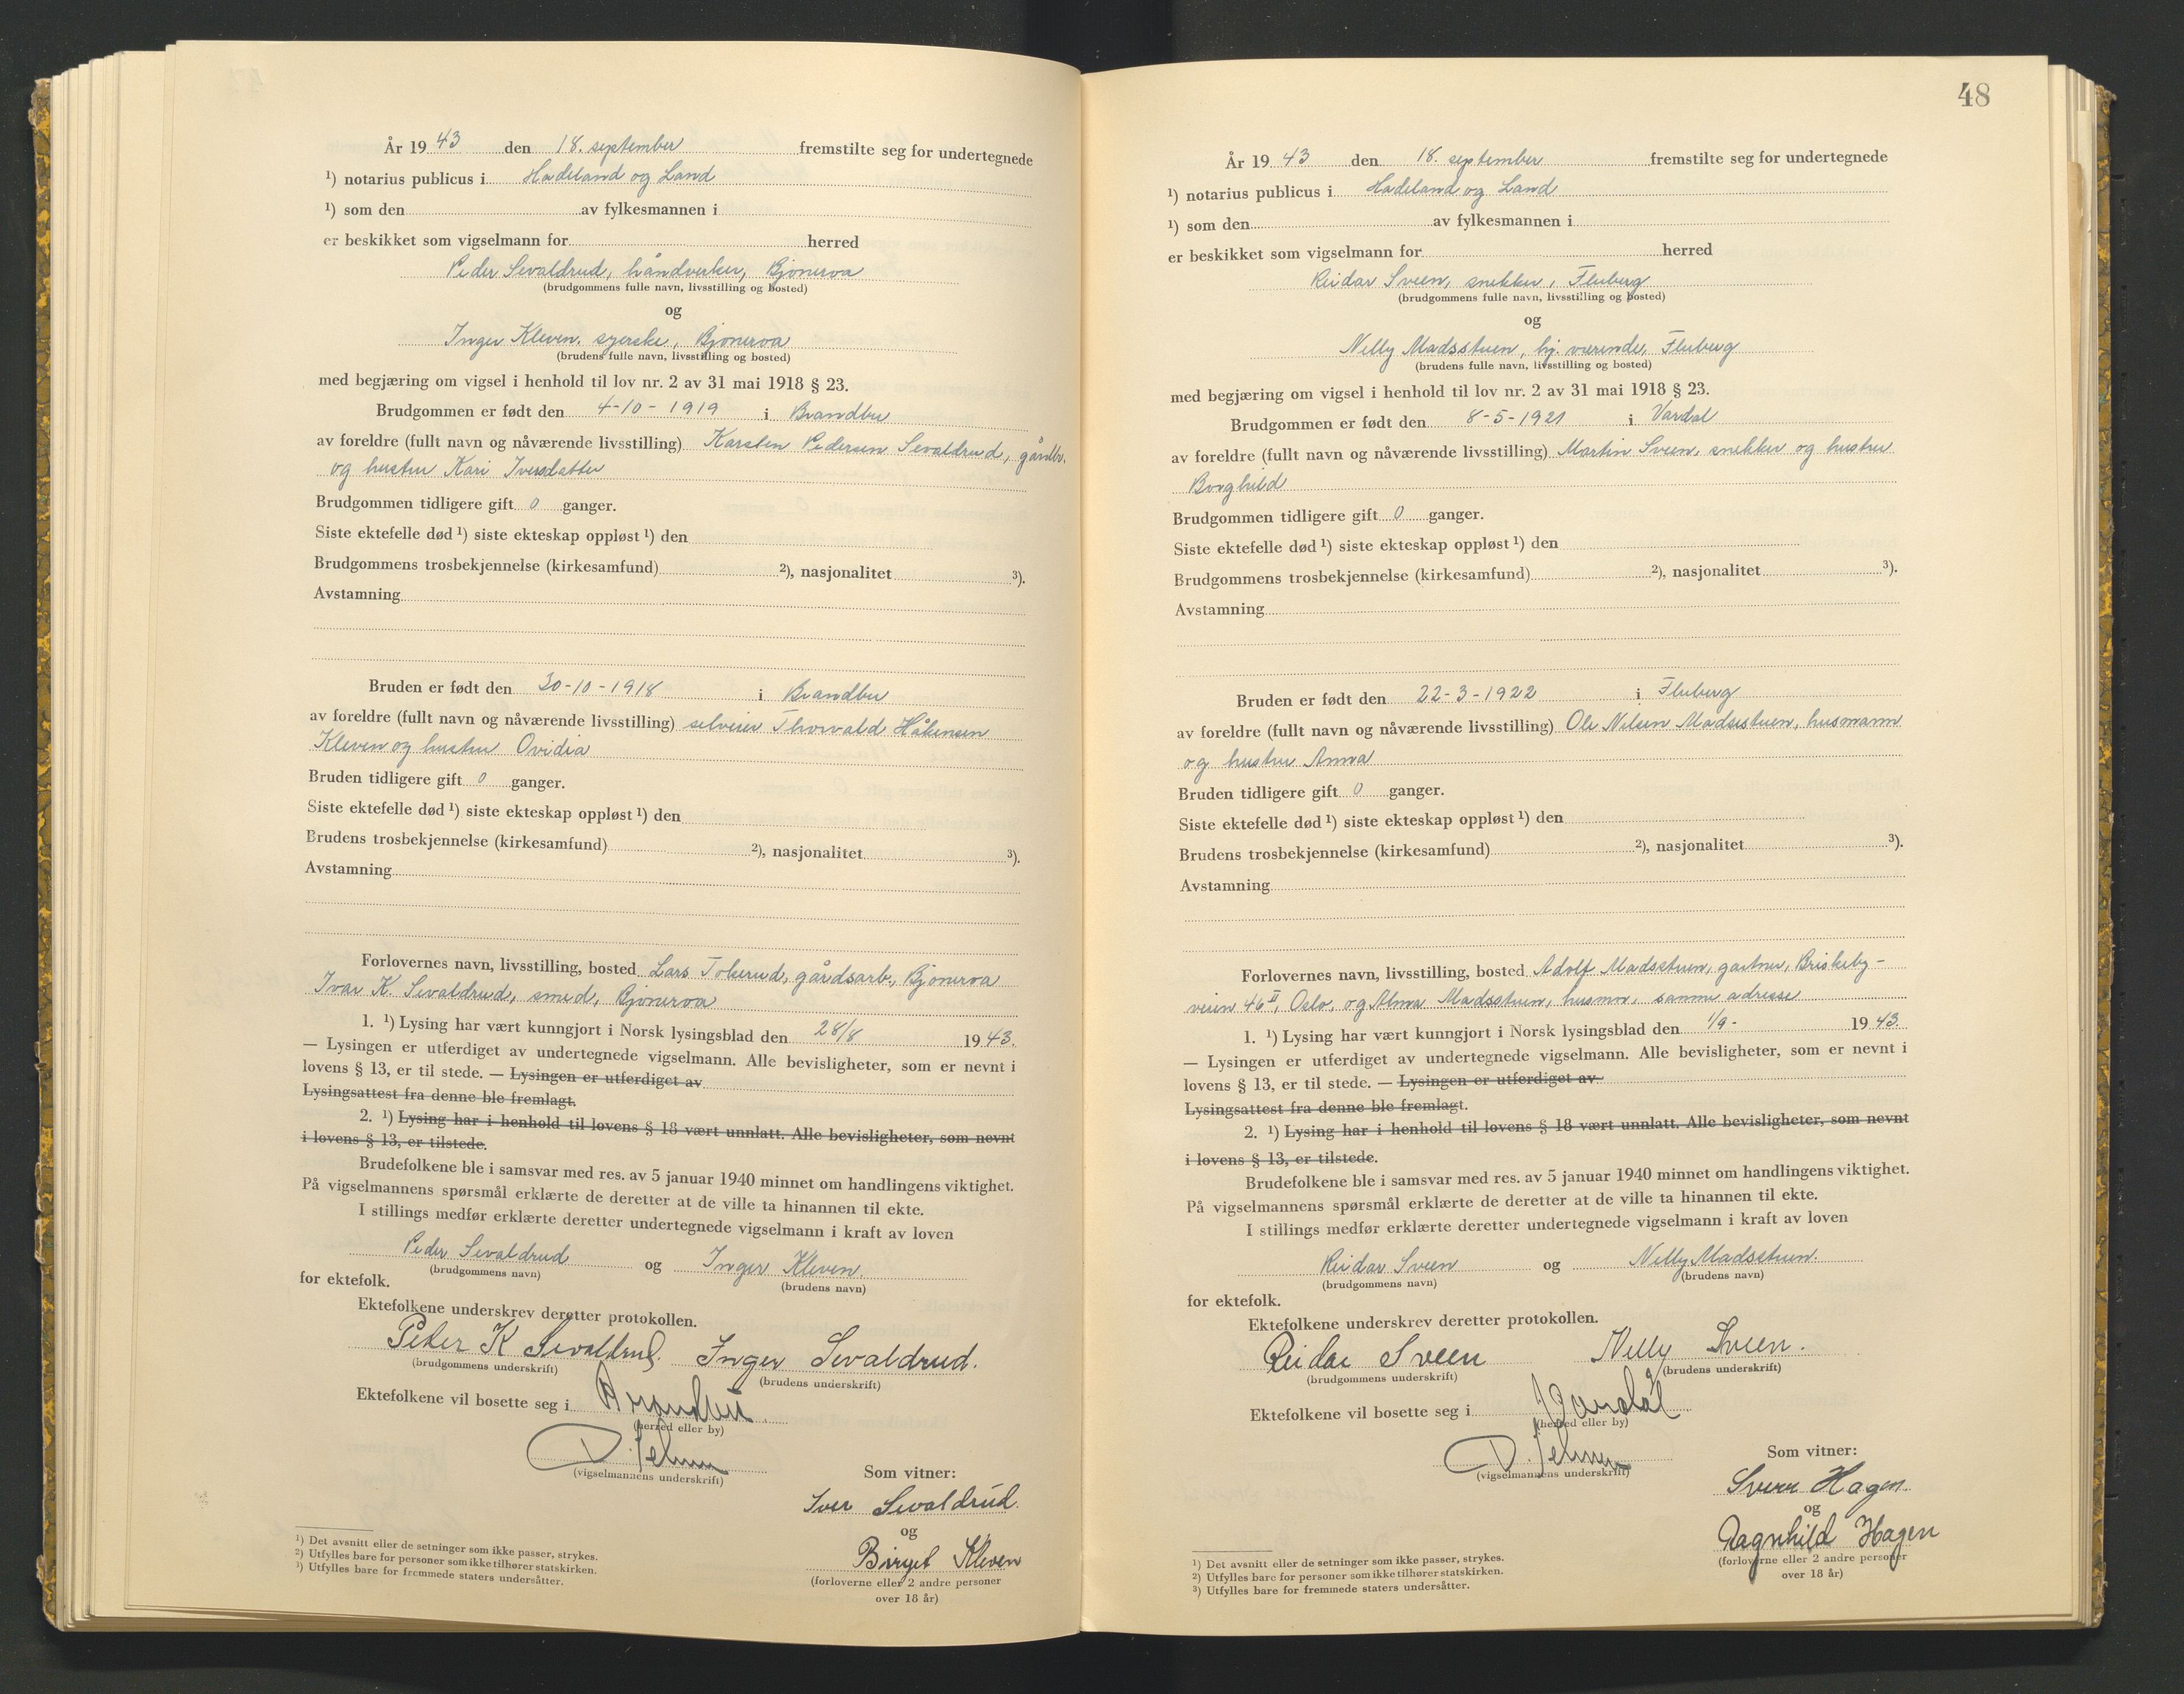 År 19 43 den 18. september fremstilte seg for undertegnede
¹) notarius publicus i Hadeland og Land
¹) som den av fylkesmannen i
er beskikket som vigselmann for herred
Peder Sevaldrud, håndverker, Bjoneroa
(brudgommens fulle navn, livsstilling og bosted)
og
Inger Kleven, syerske, Bjoneroa
(brudens fulle navn, livsstilling og bosted)
med begjæring om vigsel i henhold til lov nr. 2 av 31 mai 1918 § 23.
Brudgommen er født den 4-10-1919 i Brandbu
av foreldre (fullt navn og nåværende livsstilling) Karsten Pedersen Sevaldrud, gårdbr.
og hustru Kari Iversdatter
Brudgommen tidligere gift 0 ganger.
Siste ektefelle død ¹) siste ekteskap oppløst ¹) den
Brudgommens trosbekjennelse (kirkesamfund) ²), nasjonalitet ³).
Avstamning
Bruden er født den 30-10-1918 i Brandbu
av foreldre (fullt navn og nåværende livsstilling) selveier Thorvald Håkensen
Kleven og hustru Ovidia
Bruden tidligere gift 0 ganger.
Siste ektefelle død ¹) siste ekteskap oppløst ¹) den
Brudens trosbekjennelse (kirkesamfund) ²), nasjonalitet ³).
Avstamning
Forlovernes navn, livsstilling, bosted Lars Tokerud, gårdsarb., Bjoneroa
Ivar K. Sevaldrud, smed, Bjoneroa
1. ¹) Lysing har vært kunngjort i Norsk lysingsblad den 28/8 19 43.
— Lysingen er utferdiget av undertegnede vigselmann. Alle bevisligheter, som er nevnt i
lovens § 13, er til stede. — Lysingen er utferdiget av
Lysingsattest fra denne ble fremlagt.
2. ¹) Lysing har i henhold til lovens § 18 vært unnlatt. Alle bevisligheter, som nevnt
i lovens § 13, er tilstede.
Brudefolkene ble i samsvar med res. av 5 januar 1940 minnet om handlingens viktighet.
På vigselmannens spørsmål erklærte de deretter at de ville ta hinannen til ekte.
I stillings medfør erklærte deretter undertegnede vigselmann i kraft av loven
Peder Sevaldrud og Inger Kleven.
(brudgommens navn) (brudens navn)
for ektefolk.
Ektefolkene underskrev deretter protokollen.
Peder K Sevaldrud. Inger Sevaldrud.
(brudgommens underskrift) (brudens underskrift)
Ektefolkene vil bosette seg i Brandbu
(herred eller by)
(vigselmannens underskrift)
Som vitner:
Iver Sevaldrud.
og
Birgit Kleven
(forloverne eller 2 andre personer
over 18 år)
¹) Det avsnitt eller de setninger som ikke passer, strykes.
²) Utfylles bare for personer som ikke tilhører statskirken.
³) Utfylles bare for fremmede staters undersåtter.
48
År 19 43 den 18. september fremstilte seg for undertegnede
¹) notarius publicus i Hadeland og Land
¹) som den av fylkesmannen i
er beskikket som vigselmann for herred
Reidar Sveen, snekker, Fluberg
(brudgommens fulle navn, livsstilling og bosted)
og
Nelly Madsstuen, hj. værende, Fluberg
(brudens fulle navn, livsstilling og bosted)
med begjæring om vigsel i henhold til lov nr. 2 av 31 mai 1918 § 23.
Brudgommen er født den 8-5-1921 i Vardal
av foreldre (fullt navn og nåværende livsstilling) Martin Sveen, snekker og hustru
Borghild
Brudgommen tidligere gift 0 ganger.
Siste ektefelle død ¹) siste ekteskap oppløst ¹) den
Brudgommens trosbekjennelse (kirkesamfund) ²), nasjonalitet ³).
Avstamning
Bruden er født den 22-3-1922 i Fluberg
av foreldre (fullt navn og nåværende livsstilling) Ole Nilsen Madsstuen, husmann
og hustru Anna
Bruden tidligere gift 0 ganger.
Siste ektefelle død ¹) siste ekteskap oppløst ¹) den
Brudens trosbekjennelse (kirkesamfund) ²), nasjonalitet ³).
Avstamning
Forlovernes navn, livsstilling, bosted Adolf Madsstuen, gartner, Briskeby-
veien 46 II, Oslo, og Alma Madsstuen, husmor, samme adresse
1. ¹) Lysing har vært kunngjort i Norsk lysingsblad den 1/9- 19 43.
— Lysingen er utferdiget av undertegnede vigselmann. Alle bevisligheter, som er nevnt i
lovens § 13, er til stede. — Lysingen er utferdiget av
Lysingsattest fra denne ble fremlagt.
2. ¹) Lysing har i henhold til lovens § 18 vært unnlatt. Alle bevisligheter, som nevnt
i lovens § 13, er tilstede.
Brudefolkene ble i samsvar med res. av 5 januar 1940 minnet om handlingens viktighet.
På vigselmannens spørsmål erklærte de deretter at de ville ta hinannen til ekte.
I stillings medfør erklærte deretter undertegnede vigselmann i kraft av loven
Reidar Sveen og Nelly Madsstuen.
(brudgommens navn) (brudens navn)
for ektefolk.
Ektefolkene underskrev deretter protokollen.
Reidar Sveen Nelly Sveen.
(brudgommens underskrift) (brudens underskrift)
Ektefolkene vil bosette seg i Vardal
(herred eller by)
(vigselmannens underskrift)
Som vitner:
Sverr Hagen.
og
Ragnhild Hagen
(forloverne eller 2 andre personer
over 18 år)
¹) Det avsnitt eller de setninger som ikke passer, strykes.
²) Utfylles bare for personer som ikke tilhører statskirken.
³) Utfylles bare for fremmede staters undersåtter.